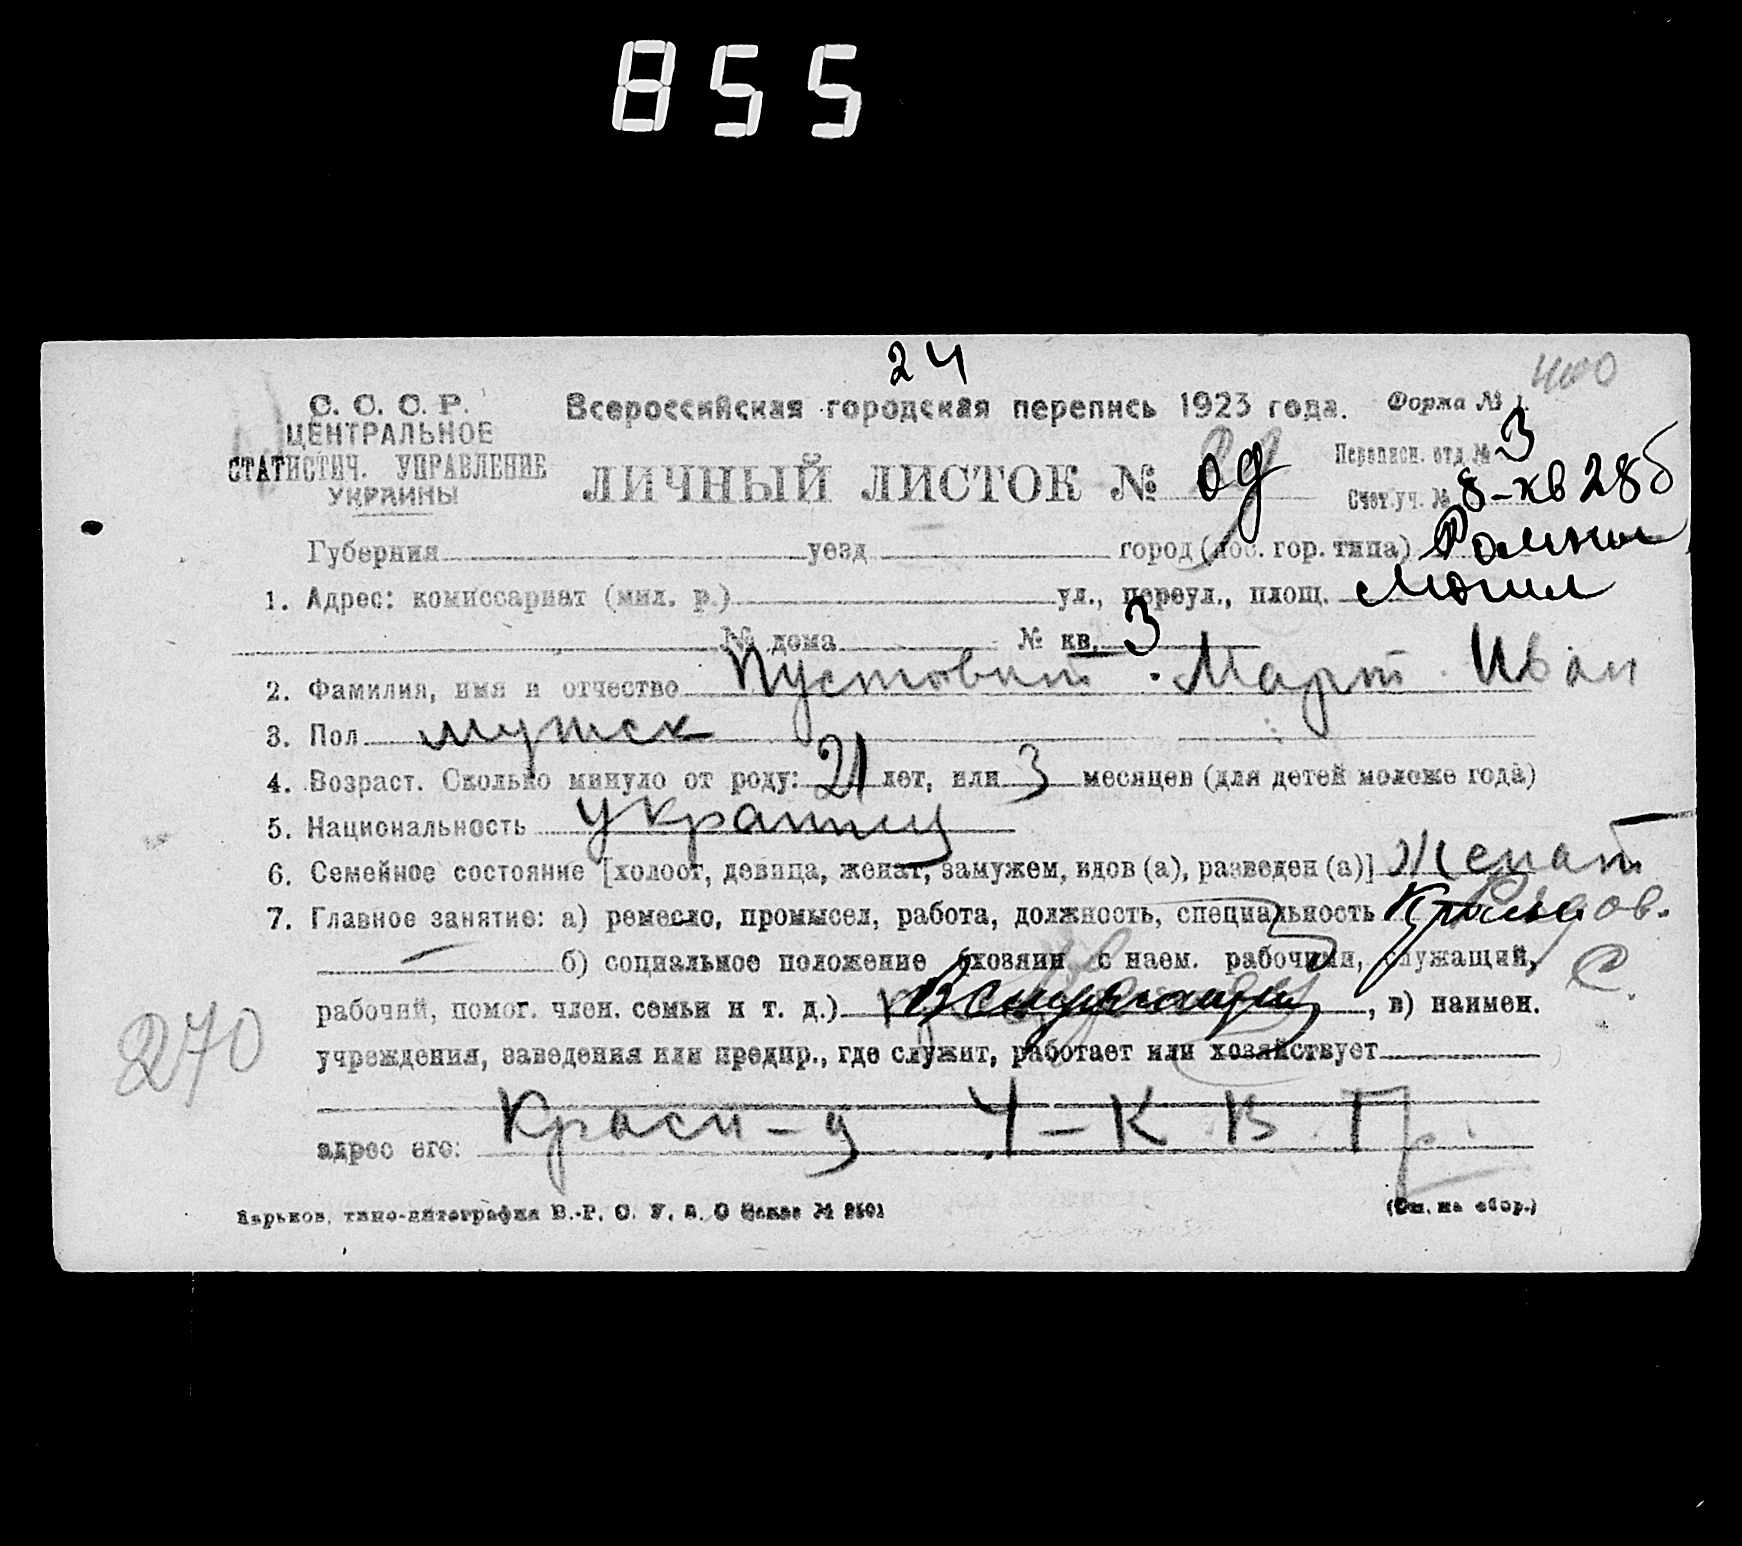 855
24
400
С. С. С. Р.
ЦЕНТРАЛЬНОЕ
СТАТИСТИЧ. УПРАВЛЕНИЕ
УКРАИНЫ
Всероссийская городская перепись 1923 года. Форма № 1.
ЛИЧНЫЙ ЛИСТОК №
Переписн. отд. № 3
Счет. уч. № 8-кв 286
Губерния уезд город (пос. гор. типа) Ромны
1. Адрес: комиссариат (мил. р.) ул., переул., площ.
№ дома № кв. 3
2. Фамилия, имя и отчество Пустовит Март Иван
3. Пол мужск
4. Возраст. Сколько минуло от роду: 21 лет, или 3 месяцев (для детей моложе года)
5. Национальность украинец
6. Семейное состояние [холост, девица, женат, замужем, вдов (а), разведен (а)] Женат
7. Главное занятие: а) ремесло, промысел, работа, должность, специальность
б) социальное положение (хозяин с наем. рабочими, служащий, С.
рабочий, помог. член. семьи и т. д.) , в) наимен.
270
учреждения, заведения или предпр., где служит, работает или хозяйствует
адрес его: 4-К В Г
Харьков, типо-литография В.-Р. О. У. В. О Заказ №
(См. на обор.)